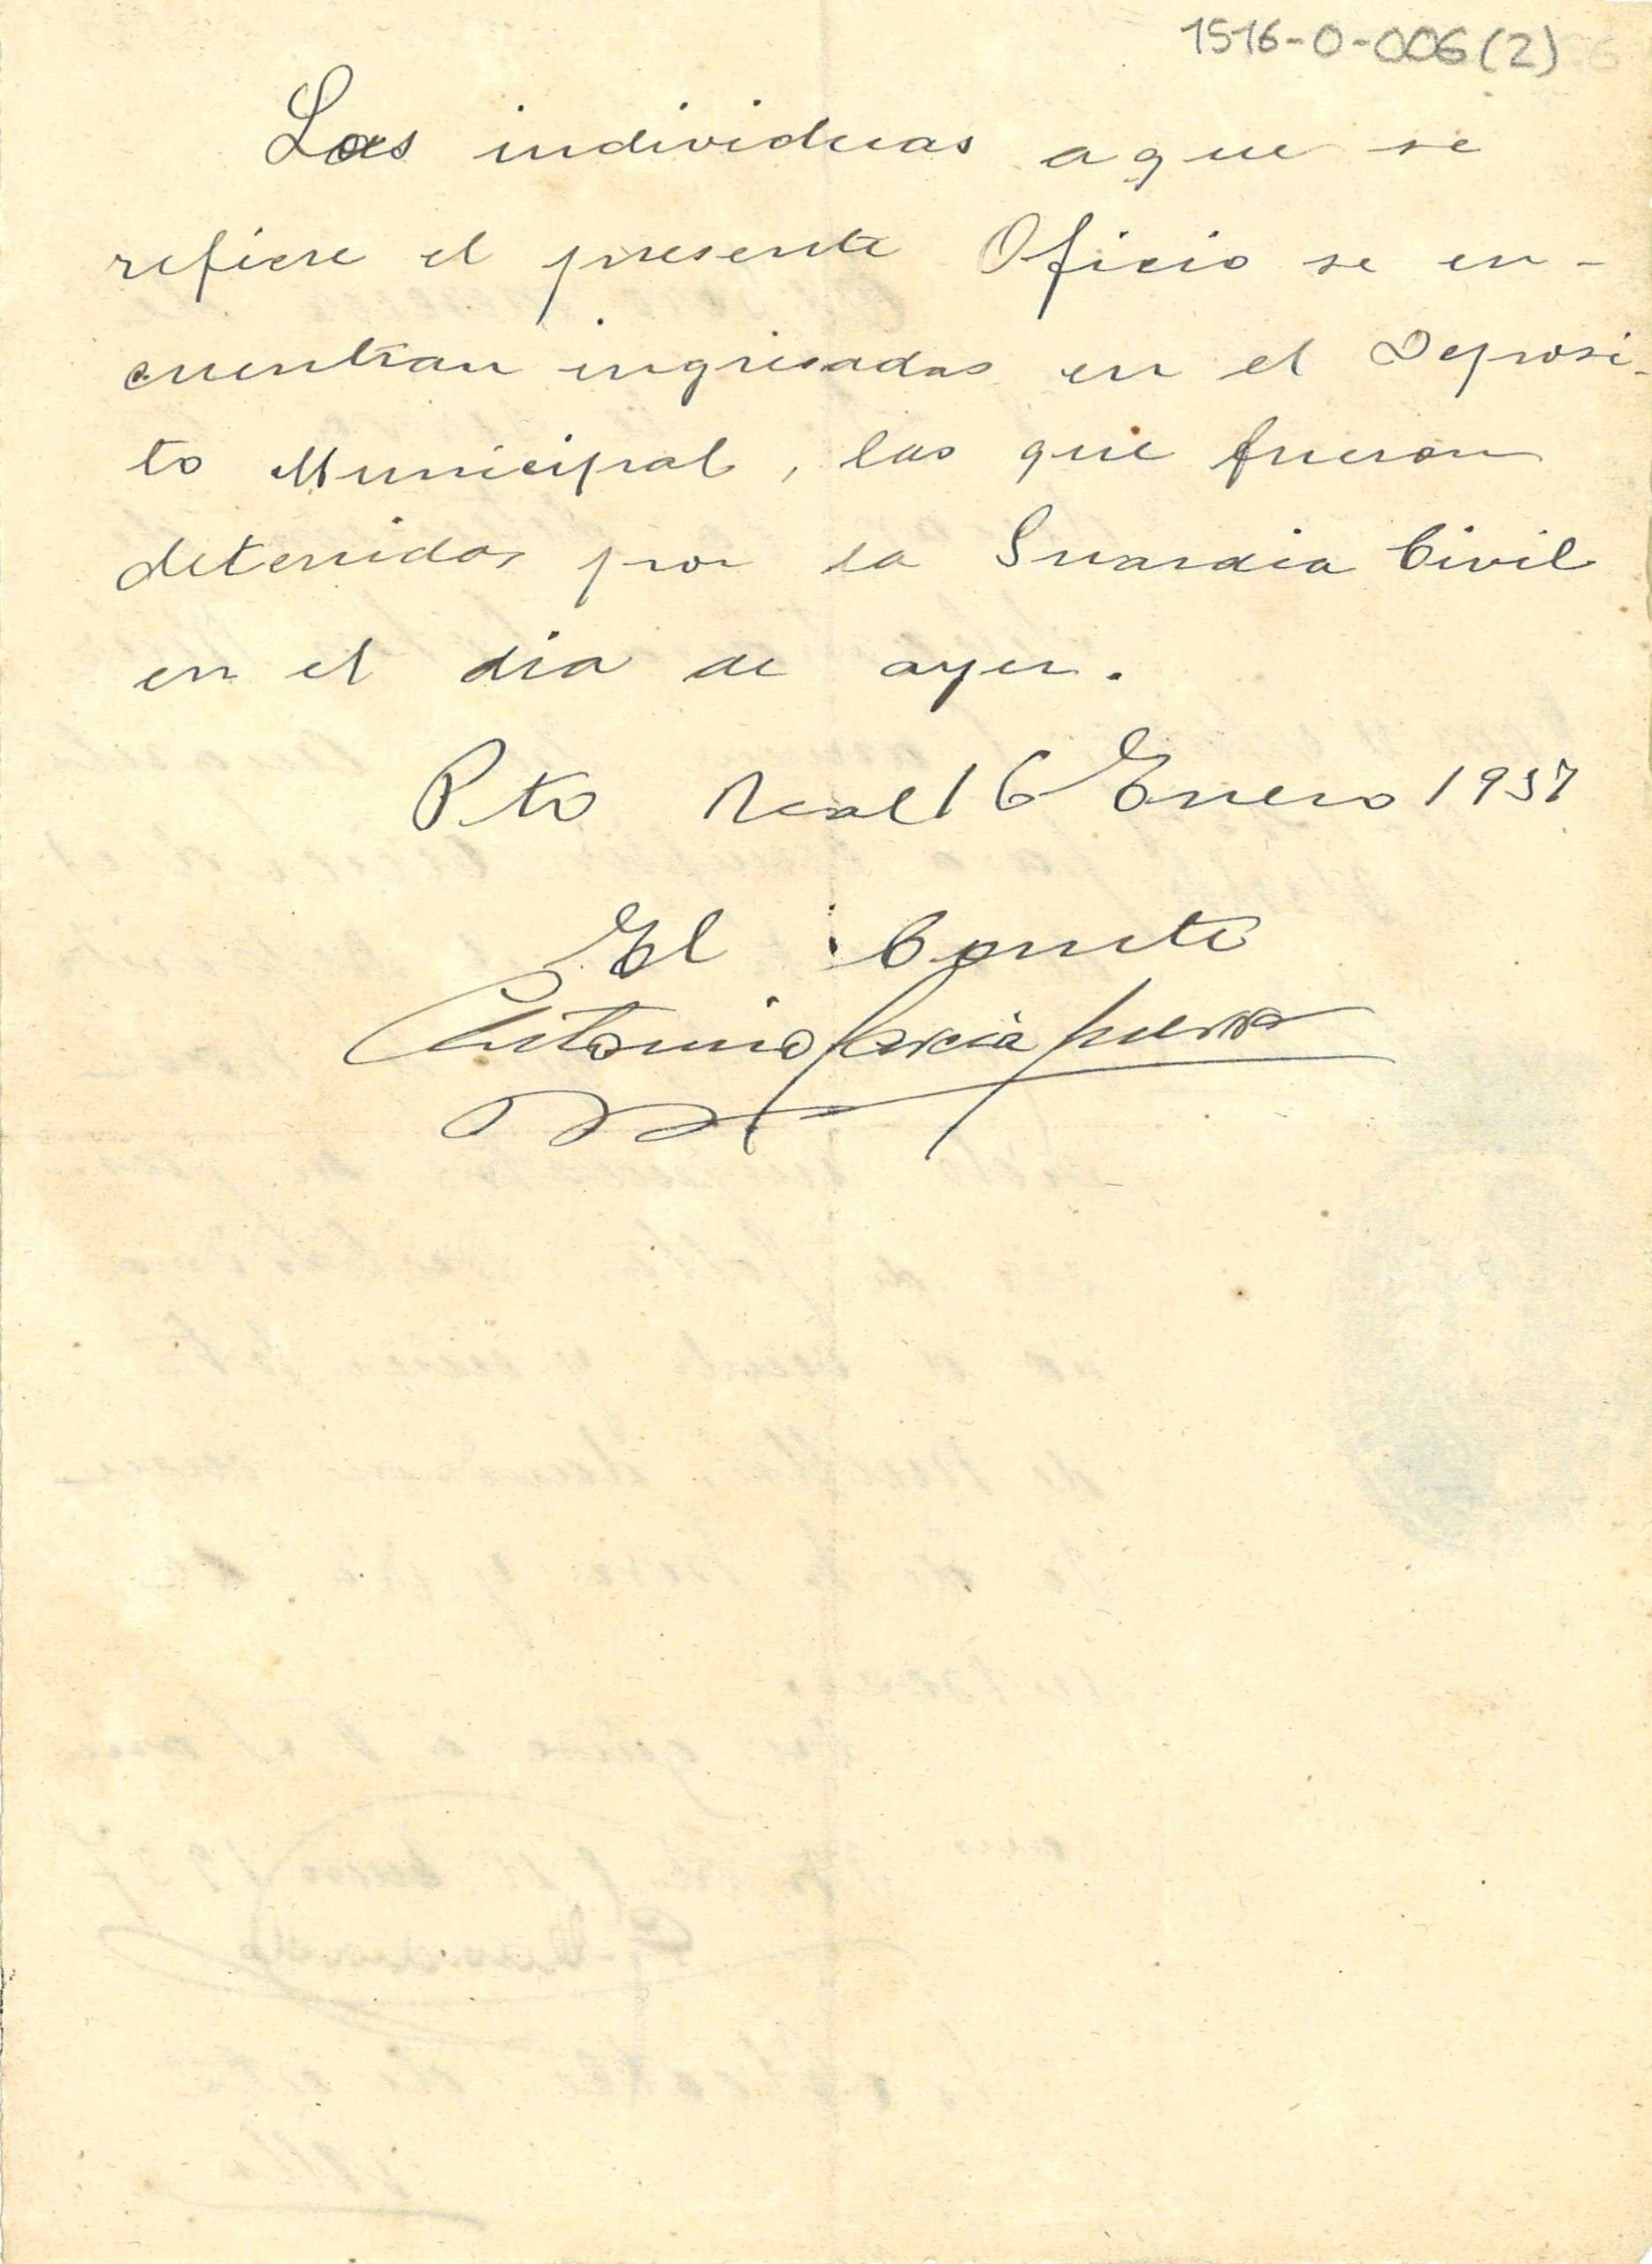 1516-0-006(2)
Las individuas a que se
refiere el presente Oficio se en-
cuentran ingresadas en el Deposi-
to Municipal, las que fueron
detenidas por la Guardia Civil
en el dia de ayer.
Pto Real 16 Enero 1937
El
Antonio Garcia